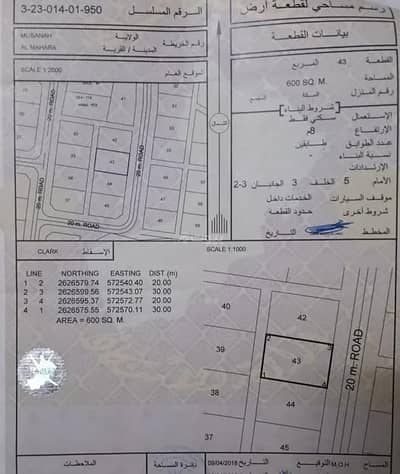 رسم مساحي لقطعة أرض
الرقم المسلسل 3-23-014-01-950
بيانات القطعة
الولاية MUSANAH
المدينة / القرية AL MAHARA
رقم الخريطة
القطعة 43 المربع
المساحة 600 SQ. M.
رقم المنزل السكة
شروط البناء
الإستعمال سكني فقط
الإرتفاع 8م
عدد الطوابق طابقين
نسبة البناء -
الإرتدادات
الأمام 5 الخلف 3 الجانبان 3-2
موقف السيارات الخدمات داخل
شروط أخرى حدود القطعة
المخطط التاريخ
SCALE 1:2500
الموقع العام
41
42
43
44
20 m. ROAD
20 m. ROAD
20 m. ROAD
الشمال
CLARK الإسقاط
SCALE 1:1000
LINE NORTHING EASTING DIST. (m)
1 2 2626579.74 572540.40 20.00
2 3 2626599.56 572543.07 30.00
3 4 2626595.37 572572.77 20.00
4 1 2626575.55 572570.11 30.00
AREA = 600 SQ. M.
40
42
39
2
3
43
1
4
38
44
37
45
20 m. ROAD
المساح M.O.H التوقيع
التاريخ 09/04/2018
دائرة المساحة
الملاحظات